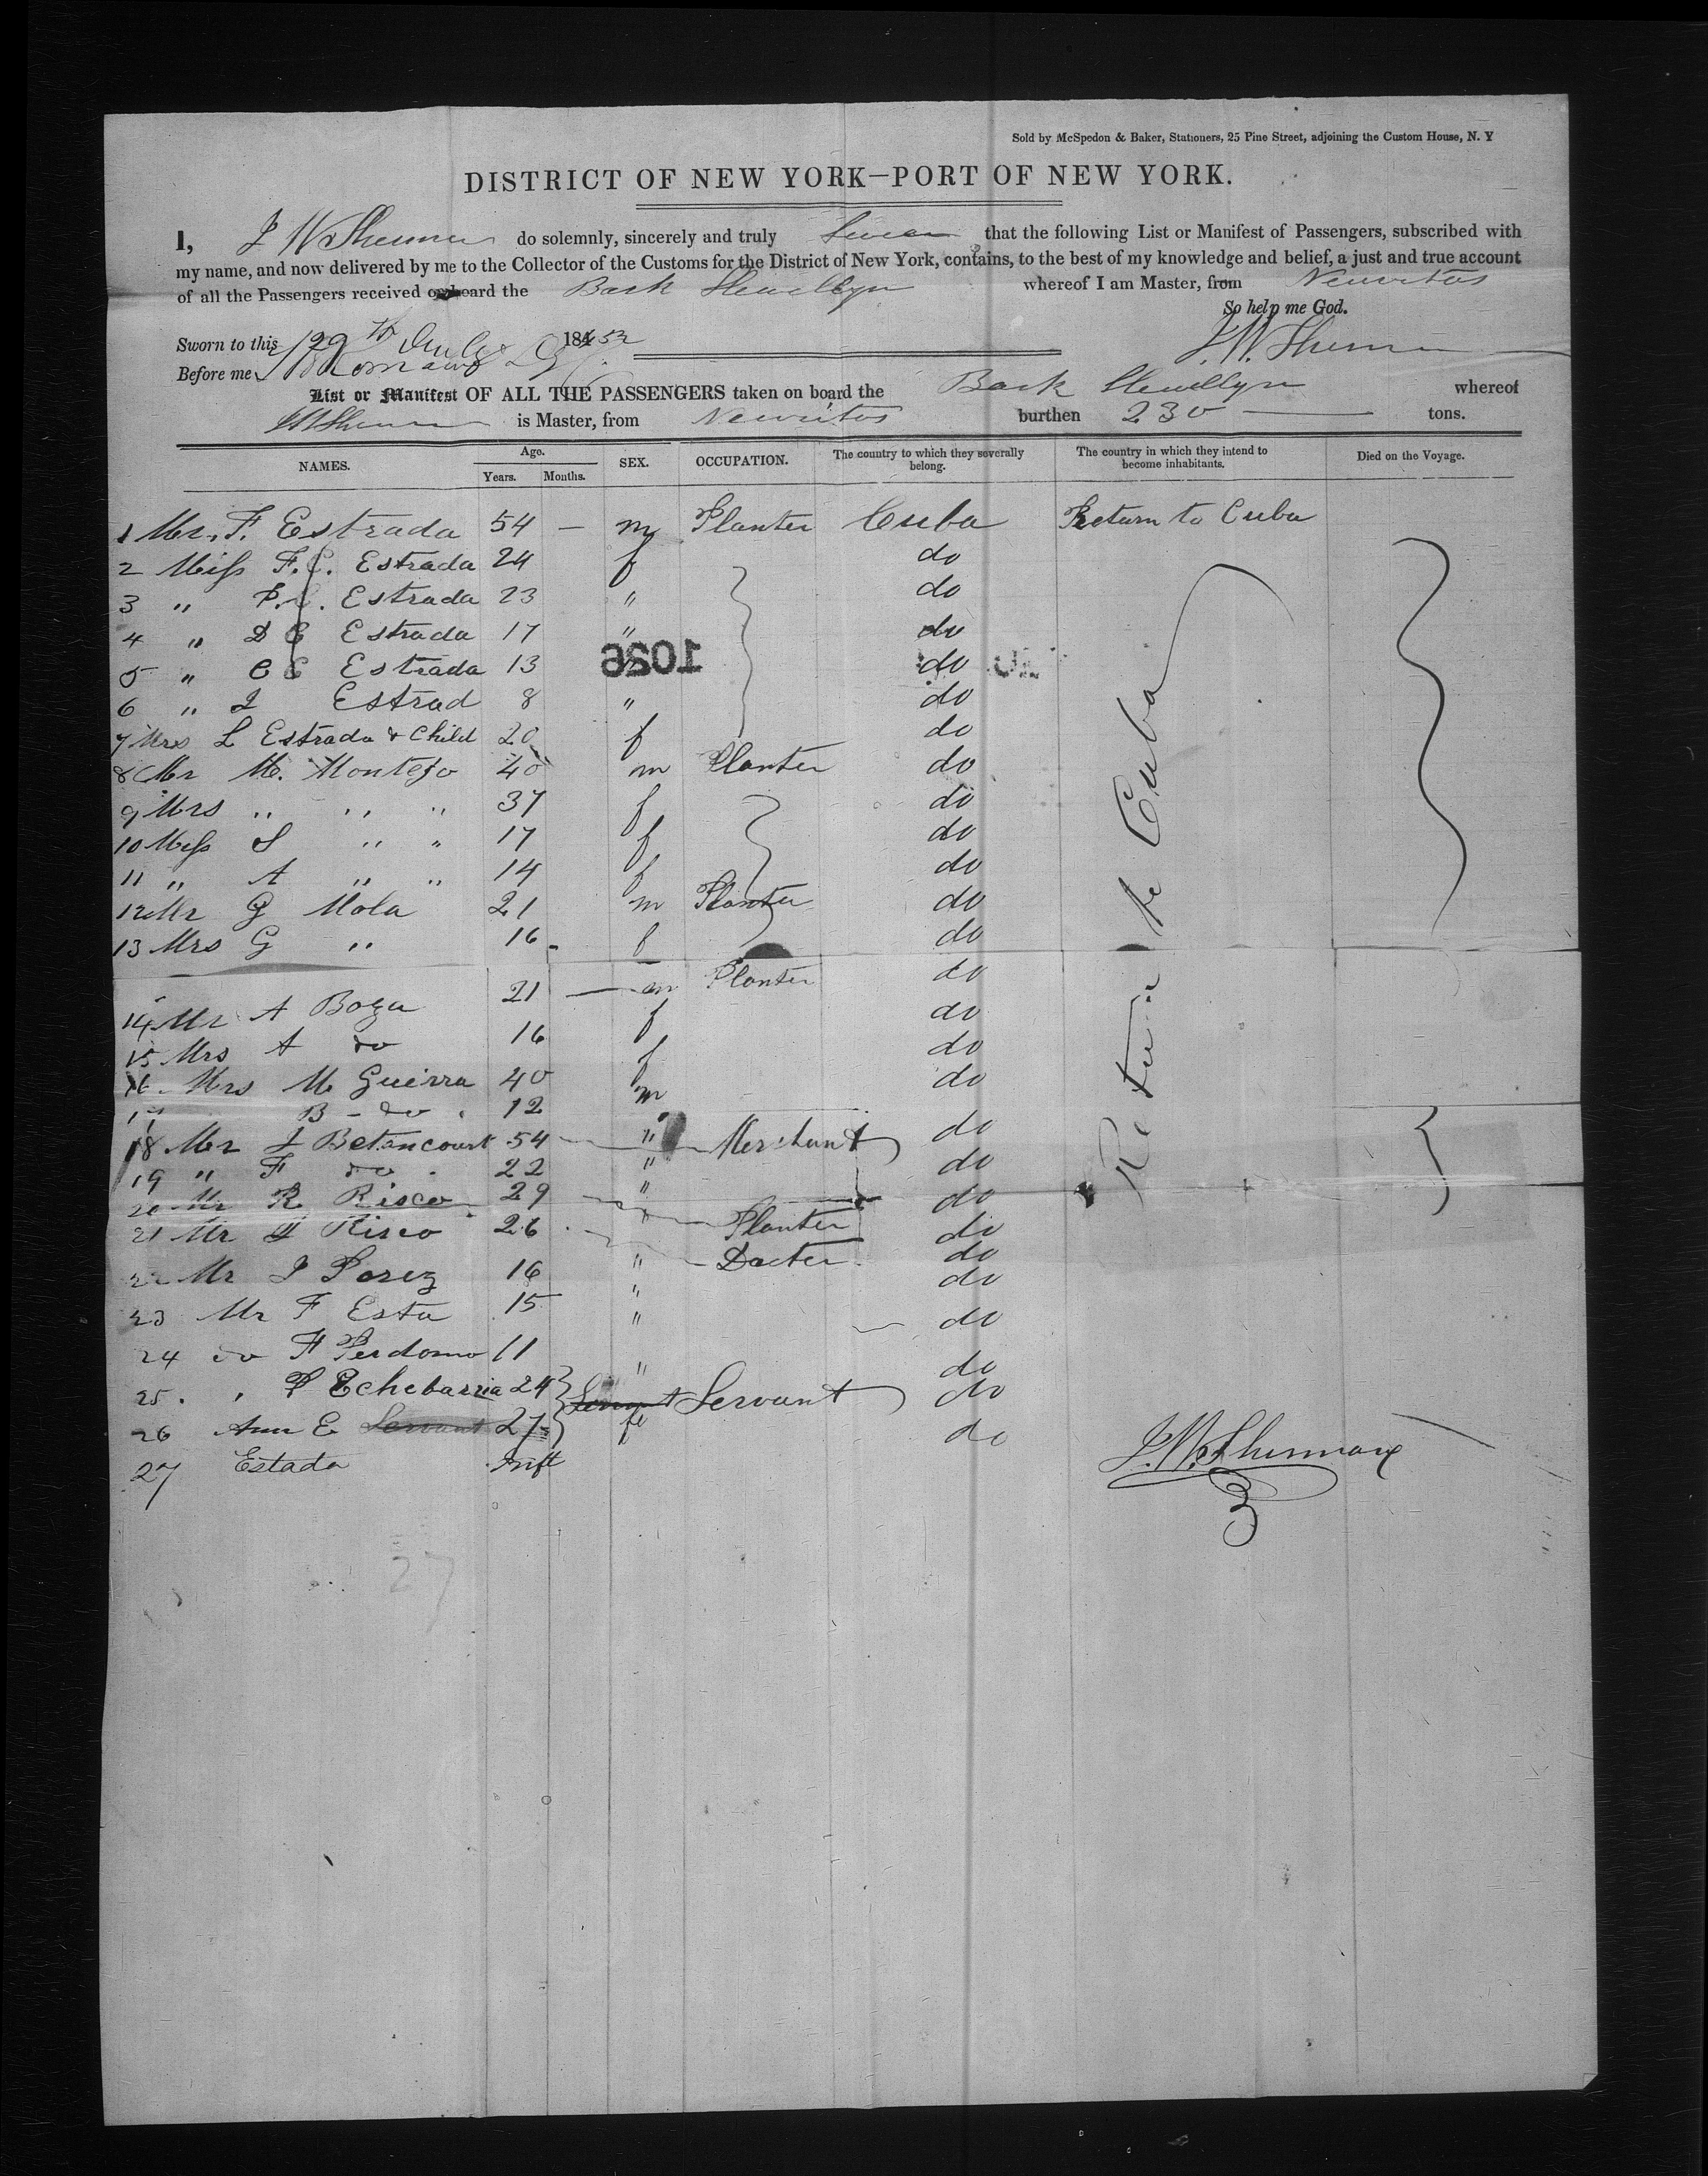 Sold by McSpedon & Baker, Stationers, 25 Pine Street, adjoining the Custom House, N. Y
DISTRICT OF NEW YORK—PORT OF NEW YORK.
I, J W Sherman do solemnly, sincerely and truly Swear that the following List or Manifest of Passengers, subscribed with
my name, and now delivered by me to the Collector of the Customs for the District of New York, contains, to the best of my knowledge and belief, a just and true account
of all the Passengers received on board the Bark Llewellyn whereof I am Master, from Neuvitas
So help me God.
Sworn to this 29th July 1852 J. W. Sherman
Before me
List or Manifest OF ALL THE PASSENGERS taken on board the Bark Llewellyn whereof
J W Sherman is Master, from Neuvitas burthen 230 tons.
NAMES. Age. Years. Months. SEX. OCCUPATION. The country to which they severally belong. The country in which they intend to become inhabitants. Died on the Voyage.
1 Mr. F. Estrada 54 — m Planter Cuba Return to Cuba
2 Miss F. C. Estrada 24 f do
3 " P. C. Estrada 23 " do
4 " D C Estrada 17 " do
5 " C C Estrada 13 do
1026
6 " I Estrad 8 " do
7 Mrs L Estrada & Child 20 f do
8 Mr M. Montejo 40 m Planter do
9 Mrs " " " 37 f do
10 Miss S " " 17 f do
11 " A " " 14 f do
12 Mr G Mola 21 m Planter do
13 Mrs G " 16 f do
Return to Cuba
14 Mr A Boza 21 — m Planter do
15 Mrs A do 16 f do
16 Mrs M Guerra 40 f do
17 B - do 12 m do
18 Mr Betancourt 54 " Merchant do
19 " F do 22 " do
20 Mr R Risco 29 " do
21 Mr Risco 26 " Planter do
22 Mr J Perez 16 " Docter do
23 Mr F Esta 15 " do
24 do F Perdomo 11 " do
25 " P Echebarria 24 " Servant do
26 Ann E Servant 27 fe do
27 Estada Inft
J. W. Sherman
27